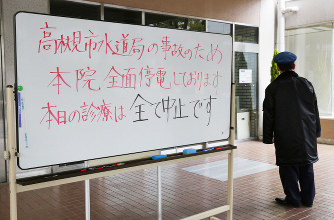 高槻市水道局の事故のため
本院、全面停電しております
本日の診療は 全て中止です